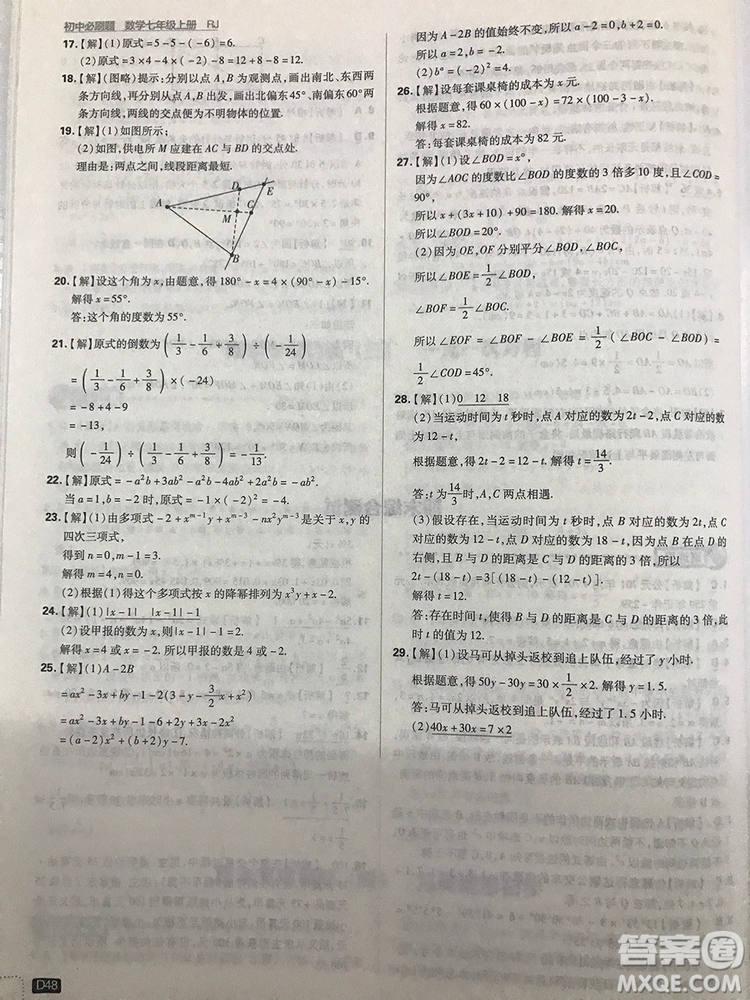 初中必刷题 数学七年级上册 RJ
17.【解】(1)原式=5-5-(-6)=6.
(2)原式=3×4-4×(-8)÷8=12+4=16.
18.【解】(图略)提示:分别以点A,B为观测点,画出南北、东西两
条方向线,再分别从点A,B出发,画出北偏东45°、南偏东60°两
条方向线,两线的交点便为不明物体的位置.
19.【解】(1)如图所示;
(2)如图,供电所M应建在AC与BD的交点处.
理由是:两点之间,线段距离最短.
D E
A M C
B
20.【解】设这个角为x,由题意,得180°-x=4×(90°-x)-15°.
解得x=55°.
答:这个角的度数为55°.
21.【解】原式的倒数为(1/3-1/6+3/8)÷(-1/24)
=(1/3-1/6+3/8)×(-24)
=-8+4-9
=-13,
则(-1/24)÷(1/3-1/6+3/8)=-1/13.
22.【解】原式=-a²b+3ab²-a²b-4ab²+2a²b=-ab².
当a=1,b=-2时,原式=-1×(-2)²=-4.
23.【解】(1)由多项式-2+xᵐ⁻¹y+xᵐ⁻³-nx²yᵐ⁻³是关于x,y的
四次三项式,
得到m=4,n=0.
(2)根据(1)得这个多项式按x的降幂排列为x³y+x-2.
24.【解】(1)|x-1| |x-1|-1
(2)设甲报的数为x,则|x-1|-1-1=1,
解得x=4或x=-2,所以甲报的数是4或-2.
25.【解】(1)A-2B
=ax²-3x+by-1-2(3-y-3/2x+x²)
=ax²-3x+by-1-6+2y+3x-2x²
=(a-2)x²+(b+2)y-7.
因为A-2B的值与字母x,y的取值无关,
所以a=2,b=-2.
(2)bᵃ=(-2)²=4.
26.【解】设每套课桌椅的成本为x元.
根据题意,得60×(100-x)=72×(100-3-x).
解得x=82.
答:每套课桌椅的成本为82元.
27.【解】(1)设∠BOD=x°,
因为∠AOC的度数比∠BOD的度数的3倍多10度,且∠COD=
90°,
所以x+(3x+10)+90=180.解得x=20.
所以∠BOD=20°.
(2)因为OE,OF分别平分∠BOD,∠BOC,
所以∠BOE=1/2∠BOD,
∠BOF=1/2∠BOC=1/2(∠BOD+∠COD).
所以∠EOF=∠BOF-∠BOE=1/2(∠BOC-∠BOD)=
1/2∠COD=45°.
28.【解】(1)0 12 18
(2)当运动时间为t秒时,点A对应的数为2t-2,点C对应的数
为12-t,
根据题意,得2t-2=12-t,解得t=14/3.
答:t为14/3时,点A与点C相遇.
(3)假设存在,当运动时间为t秒时,点B对应的数为2t,点C
对应的数为12-t,点D对应的数为18-t,因为点B在点D的
右侧,且B与D的距离是C与D的距离的3倍,所以
2t-(18-t)=3[(18-t)-(12-t)],
解得t=12.
答:存在时间t,使得B与D的距离是C与D的距离的3倍,此
时t的值为12.
29.【解】(1)设马可从掉头返校到追上队伍,经过了y小时.
根据题意,得50y-30y=30×1/2×2.解得y=1.5.
答:马可从掉头返校到追上队伍,经过了1.5小时.
(2)40x+30x=7×2
D48
答案圈
MXQE.COM